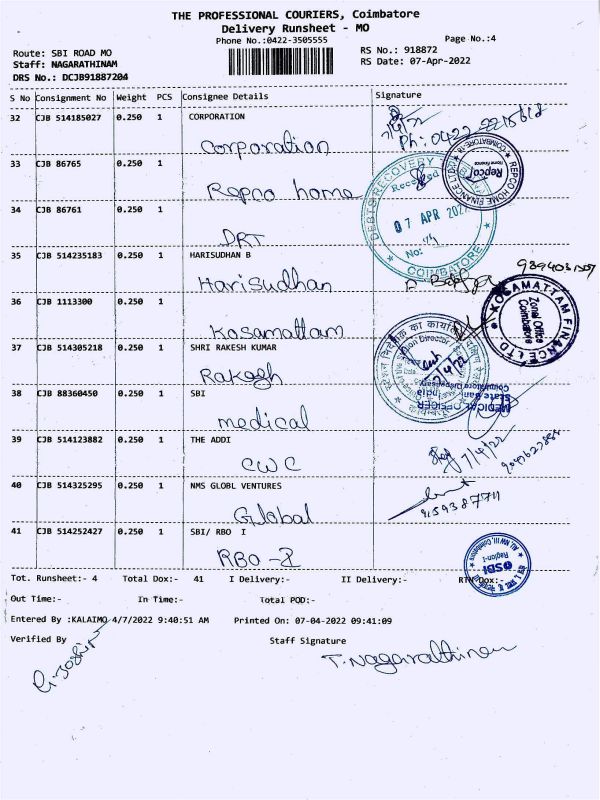 THE PROFESSIONAL COURIERS, Coimbatore
Delivery Runsheet - MO
Phone No.:0422-3505555 Page No.:4
Route: SBI ROAD MO RS No.: 918872
Staff: NAGARATHINAM RS Date: 07-Apr-2022
DRS No.: DCJB91887204
S No Consignment No Weight PCS Consignee Details Signature
32 CJB 514185027 0.250 1 CORPORATION
Corporation
7/4/22
Ph: 0422 2215618
33 CJB 86765 0.250 1
Repco home
REPCO HOME FINANCE LTD COIMBATORE
Repco
34 CJB 86761 0.250 1
DRT
DEBTS RECOVERY COIMBATORE
Received
07 APR 2022
No:
35 CJB 514235183 0.250 1 HARISUDHAN B
Harisudhan
9394031507
36 CJB 1113300 0.250 1
Kosamattam
KOSAMATTAM FINANCE LTD
Zonal Office
Coimbatore
37 CJB 514305218 0.250 1 SHRI RAKESH KUMAR
Rakesh
38 CJB 88360450 0.250 1 SBI
medical
MEDICAL OFFICER
State Bank of India
39 CJB 514123882 0.250 1 THE ADDI
CWC
7/4/22
40 CJB 514325295 0.250 1 NMS GLOBL VENTURES
Global
9159387711
41 CJB 514252427 0.250 1 SBI/ RBO I
RBO -I
SBI
Region-I
Tot. Runsheet:- 4 Total Dox:- 41 I Delivery:- II Delivery:- RTN Dox:-
Out Time:- In Time:- Total POD:-
Entered By :KALAIMO 4/7/2022 9:40:51 AM Printed On: 07-04-2022 09:41:09
Verified By Staff Signature
T. Nagarathinam